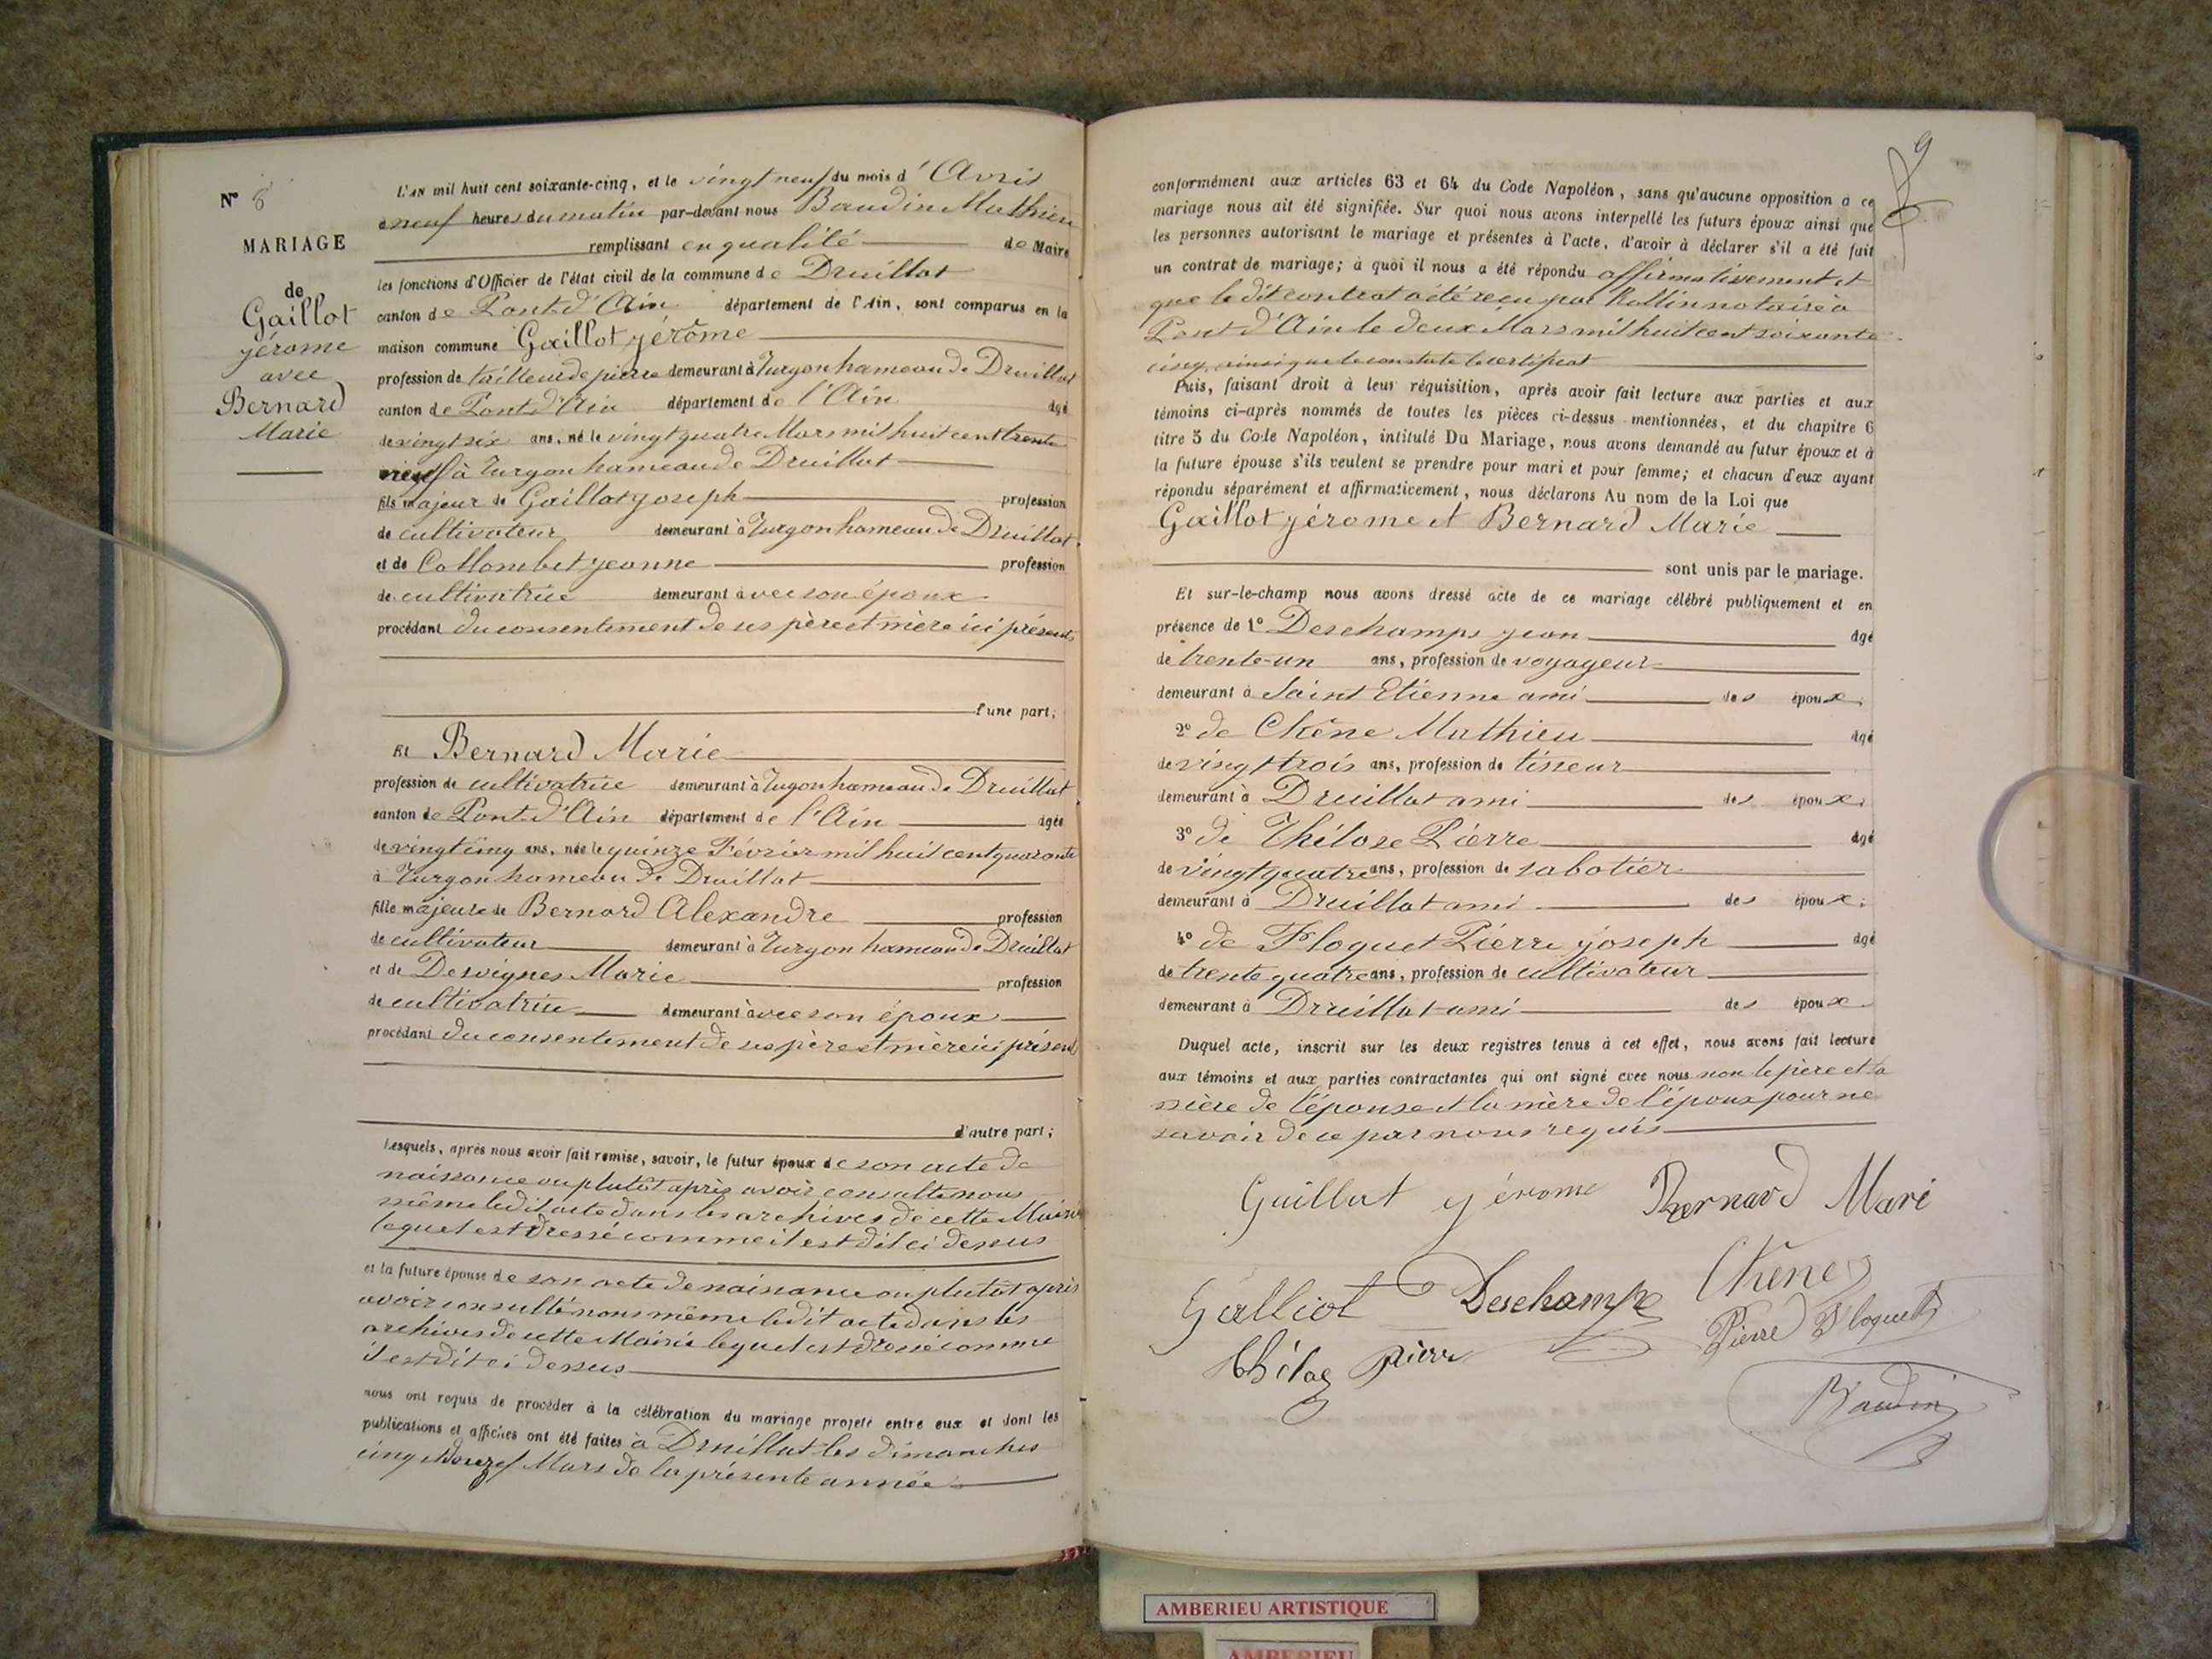 N° 8
MARIAGE
de
Gaillot
jérome
avec
Bernard
Marie
L'AN mil huit cent soixante-cinq, et le vingt neuf du mois d'Avril
à neuf heures du matin par-devant nous Baudin Mathieu
remplissant en qualité de Maire
les fonctions d'Officier de l'état civil de la commune de Druillat
canton de Pont d'Ain département de l'Ain, sont comparus en la
maison commune Gaillot jérôme
profession de tailleur de pierre demeurant à Turgon hameau de Druillat
canton de Pont d'Ain département de l'Ain âgé
de vingt six ans, né le vingt quatre Mars mil huit cent trente
neuf à Turgon hameau de Druillat
fils majeur de Gaillot joseph profession
de cultivateur demeurant à Turgon hameau de Druillat
et de Collombet jeanne profession
de cultivatrice demeurant avec son époux
procédant du consentement de ses père et mère ici présents
d'une part;
Et Bernard Marie
profession de cultivatrice demeurant à Turgon hameau de Druillat
canton de Pont d'Ain département de l'Ain âgée
de vingt cinq ans, née le quinze Février mil huit cent quarante
à Turgon hameau de Druillat
fille majeure de Bernard Alexandre profession
de cultivateur demeurant à Turgon hameau de Druillat
et de Desvignes Marie profession
de cultivatrice demeurant avec son époux
procédant du consentement de ses père et mère ici présents
d'autre part;
Lesquels, après nous avoir fait remise, savoir, le futur époux de son acte de
naissance ou plutôt après avoir consulté nous
même ledit acte dans les archives de cette Mairie
lequel est dressé comme il est dit ci dessus
et la future épouse de son acte de naissance ou plutôt après
avoir consulté nous même ledit acte dans les
archives de cette Mairie lequel est dressé comme
il est dit ci dessus
nous ont requis de procéder à la célébration du mariage projeté entre eux et dont les
publications et affiches ont été faites à Druillat les dimanches
cinq et douze Mars de la présente année
9
conformément aux articles 63 et 64 du Code Napoléon, sans qu'aucune opposition à ce
mariage nous ait été signifiée. Sur quoi nous avons interpellé les futurs époux ainsi que
les personnes autorisant le mariage et présentes à l'acte, d'avoir à déclarer s'il a été fait
un contrat de mariage; à quoi il nous a été répondu affirmativement et
que le dit contrat a été reçu par Rollin notaire à
Pont d'Ain le deux Mars mil huit cent soixante
cinq, ainsi que le constate le certificat
Puis, faisant droit à leur réquisition, après avoir fait lecture aux parties et aux
témoins ci-après nommés de toutes les pièces ci-dessus mentionnées, et du chapitre 6
titre 5 du Code Napoléon, intitulé Du Mariage, nous avons demandé au futur époux et à
la future épouse s'ils veulent se prendre pour mari et pour femme; et chacun d'eux ayant
répondu séparément et affirmativement, nous déclarons Au nom de la Loi que
Gaillot jérome et Bernard Marie
sont unis par le mariage.
Et sur-le-champ nous avons dressé acte de ce mariage célébré publiquement et en
présence de 1° Deschamps jean âgé
de trente-un ans, profession de voyageur
demeurant à Saint Etienne ami des époux;
2° de Chêne Mathieu âgé
de vingt trois ans, profession de tisseur
demeurant à Druillat ami des époux;
3° de Théloze Pierre âgé
de vingt quatre ans, profession de sabotier
demeurant à Druillat ami des époux;
4° de Floquet Pierre joseph âgé
de trente quatre ans, profession de cultivateur
demeurant à Druillat ami des époux
Duquel acte, inscrit sur les deux registres tenus à cet effet, nous avons fait lecture
aux témoins et aux parties contractantes qui ont signé avec nous non le père et la
mère de l'épouse et la mère de l'époux pour ne
savoir de ce par nous requis
Gaillot jérome Bernard Mari
Galliot Deschamps Chêne
Théloz Pierr Pierre Floquet
Baudin
AMBERIEU ARTISTIQUE
AMBERIEU